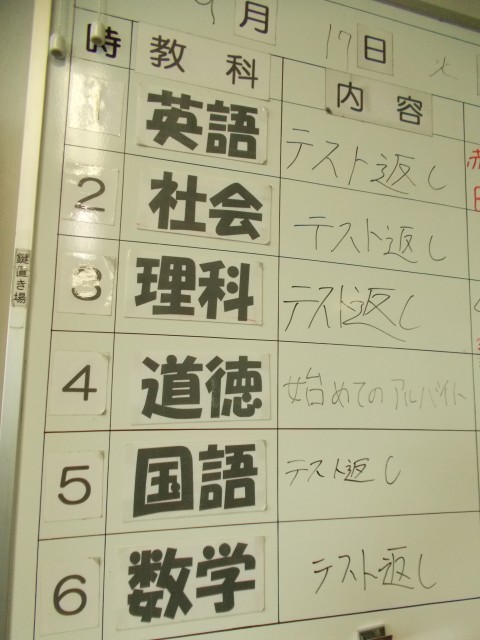 9月 17日 火
時 教科 内容
1 英語 テスト返し
2 社会 テスト返し
3 理科 テスト返し
鍵置き場
4 道徳 始めてのアルバイト
5 国語 テスト返し
6 数学 テスト返し